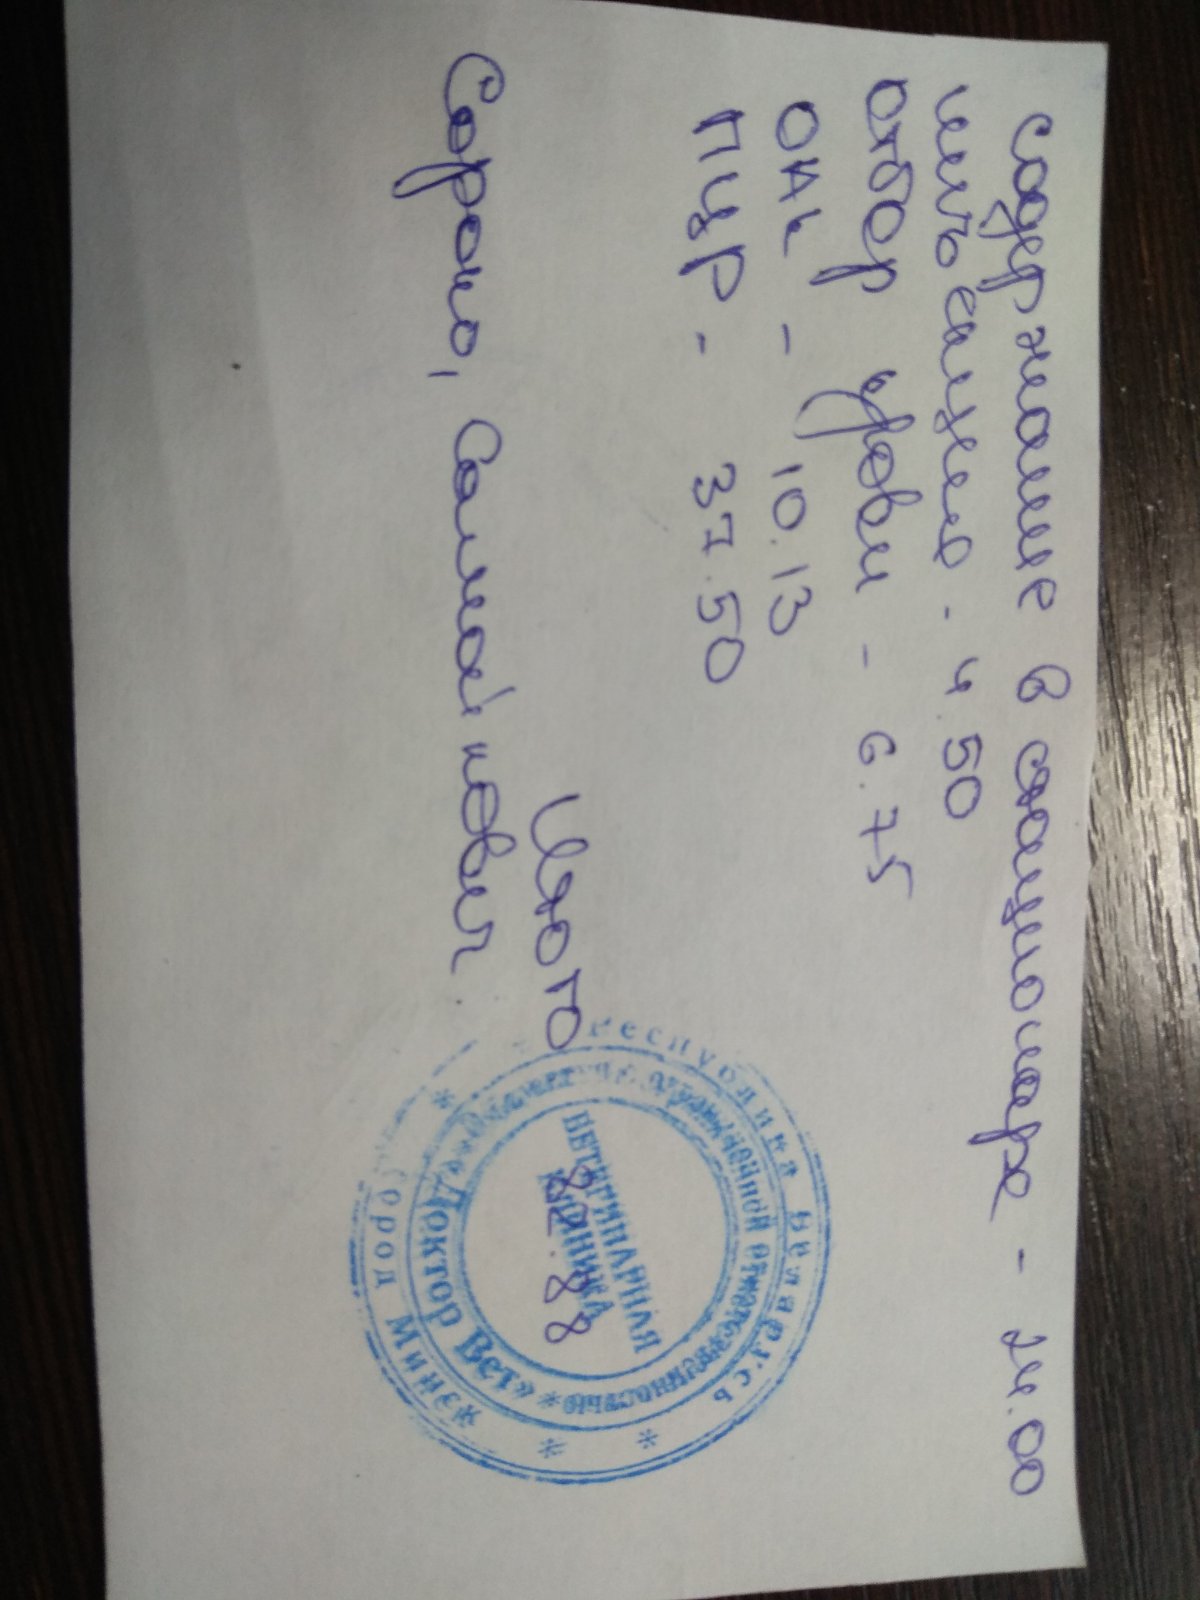 содержание в стационаре - 24.00
инъекция - 4.50
отбор крови - 6.75
ОАК - 10.13
ПЦР - 37.50
Итого 82.88
Сорока,
Республика Беларусь
Общество с ограниченной ответственностью
«Доктор Вет»
город Минск
ВЕТЕРИНАРНАЯ
КЛИНИКА